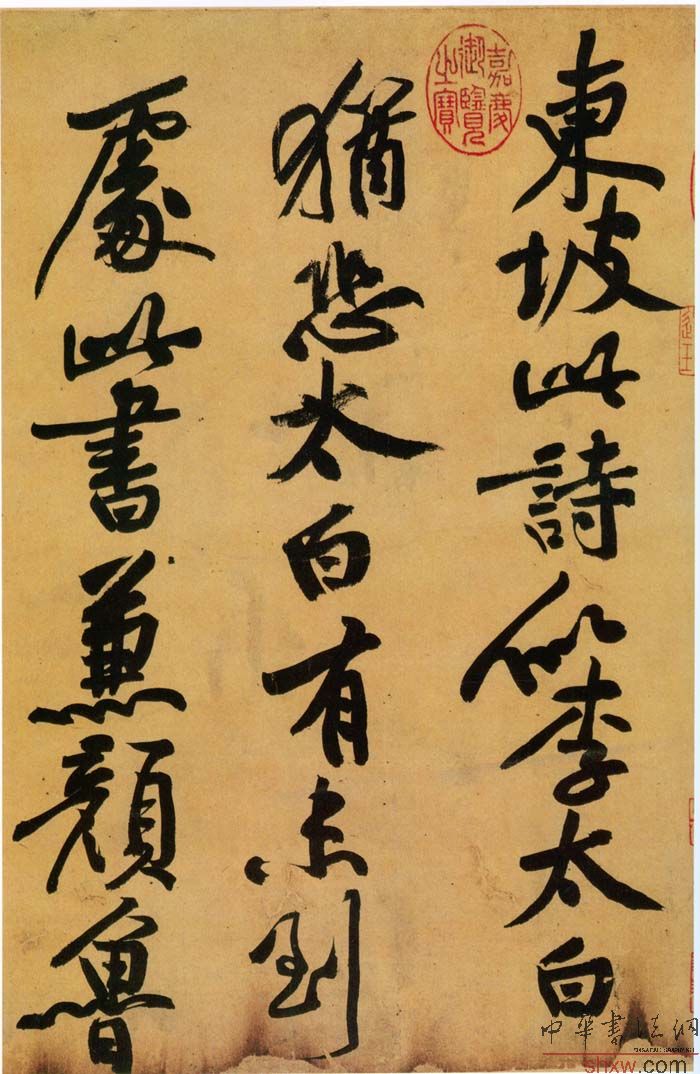 東坡此詩似李太白
猶恐太白有未到
處此書兼顔魯
嘉慶御覽之寶
中華書法網
shxw.com